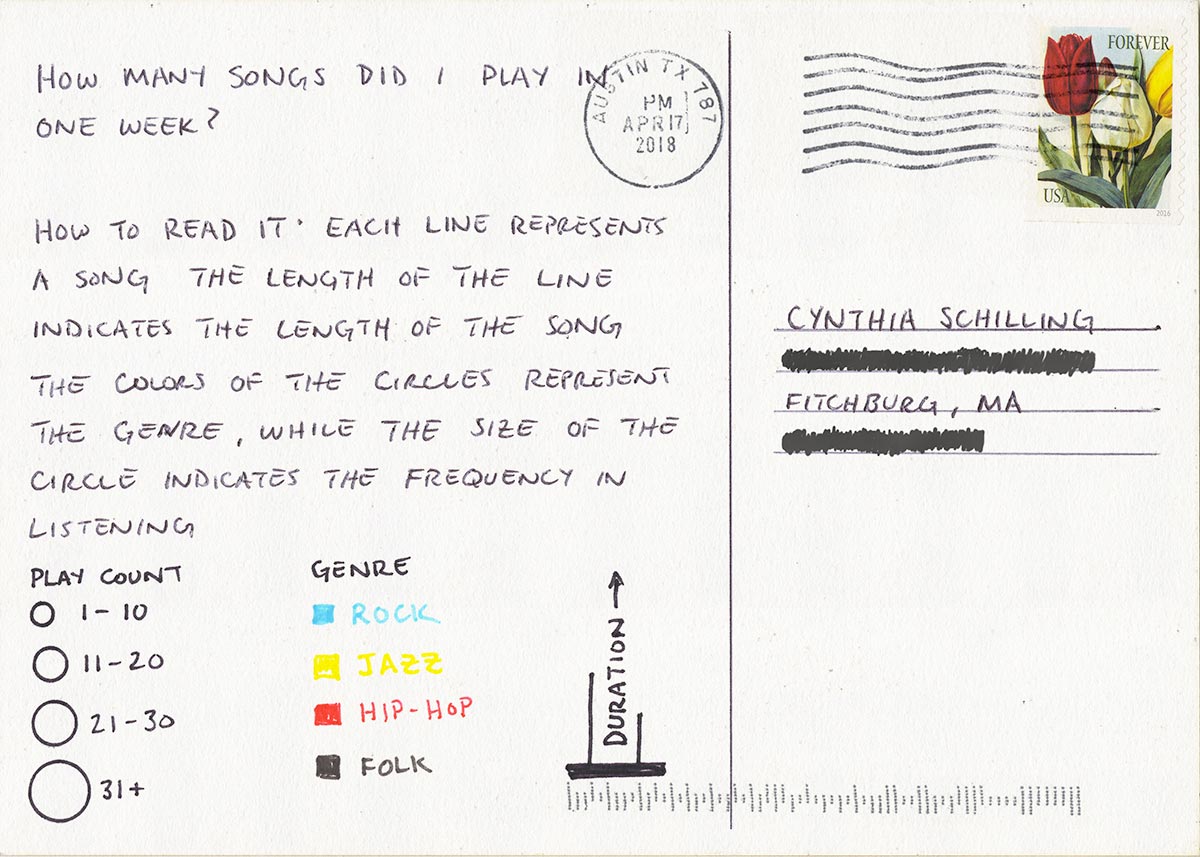 HOW MANY SONGS DID I PLAY IN
ONE WEEK?
HOW TO READ IT: EACH LINE REPRESENTS
A SONG THE LENGTH OF THE LINE
INDICATES THE LENGTH OF THE SONG
THE COLORS OF THE CIRCLES REPRESENT
THE GENRE, WHILE THE SIZE OF THE
CIRCLE INDICATES THE FREQUENCY IN
LISTENING
PLAY COUNT
1-10
11-20
21-30
31+
GENRE
ROCK
JAZZ
HIP-HOP
FOLK
DURATION
AUSTIN TX 787
PM
APR 17
2018
FOREVER
USA
2016
CYNTHIA SCHILLING
FITCHBURG, MA